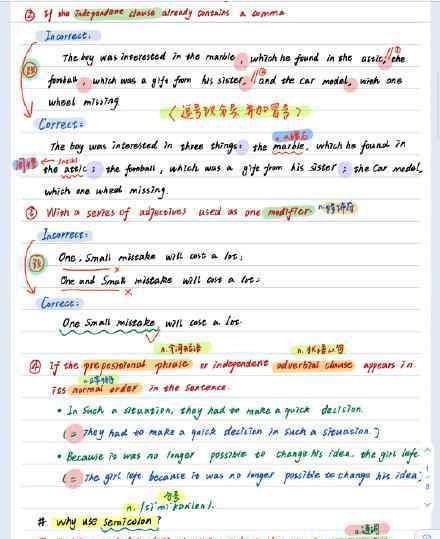 ② If the independent clause already contains a comma
Incorrect:
The boy was interested in the marble, which he found in the attic, the ①
football, which was a gift from his sister, ② and the car model, with one
wheel missing
〈逗号改分号 并加冒号〉
Correct:
The boy was interested in three things: the marble, which he found in
the attic; the football, which was a gift from his sister; the car model,
which one wheel missing.
③ With a series of adjectives used as one modifier.
Incorrect:
One, small mistake will cost a lot.
One and small mistake will cost a lot.
Correct:
One small mistake will cost a lot.
n. 介词短语 n. 状语从句
④ If the prepositional phrase or independent adverbial clause appears in
its normal order in the sentence.
• In such a situation, they had to make a quick decision.
(= They had to make a quick decision in such a situation.)
• Because it was no longer possible to change his idea, the girl left
(= The girl left because it was no longer possible to change his idea)
分号
n. /
# Why use semicolon?